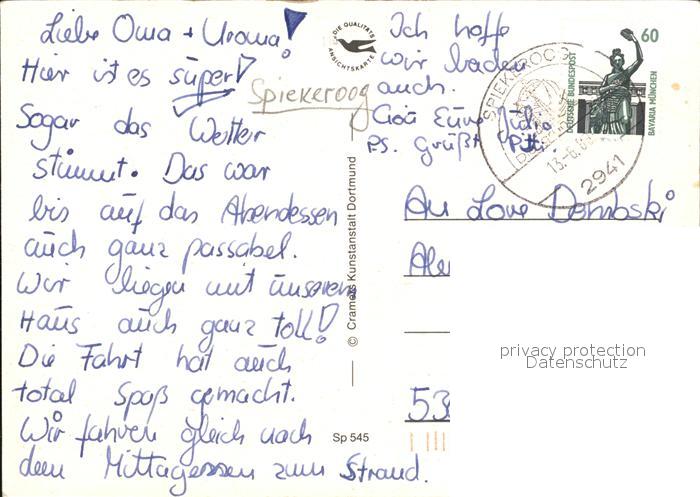 Liebe Oma + Uroma!
Hier ist es super!
Spiekeroog
Sogar das Wetter
stimmt. Das war
bis auf das Abendessen
auch ganz passabel.
Wir liegen mit unserem
Haus auch ganz toll!
Die Fahrt hat auch
total Spaß gemacht.
Wir fahren gleich nach
dem Mittagessen zum Strand.
Ich hoffe
wir baden
auch.
Ciao Eure Julia
PS. Grüßt
DIE QUALITÄTS
ANSICHTSKARTE
© Cramers Kunstanstalt Dortmund
Sp 545
60
DEUTSCHE BUNDESPOST
BAVARIA MÜNCHEN
SPIEKEROOG
13.-6.
2941
An Love Dombski
53
privacy protection
Datenschutz